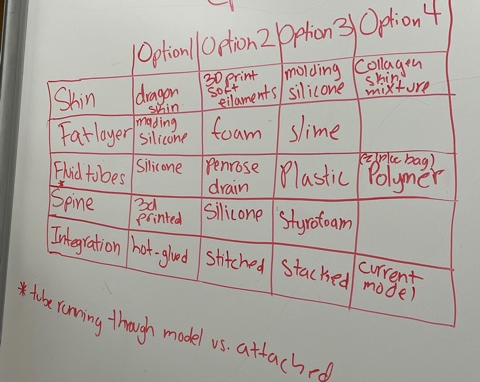 Option 1 Option 2 Option 3 Option 4
Skin dragon skin 3D print soft filaments molding silicone Collagen skin mixture
Fat layer molding silicone foam slime
Fluid tubes Silicone penrose drain Plastic Polymer
*
Spine 3d printed Silicone Styrofoam
Integration hot-glued Stitched Stacked current model
* tube running through model vs. attached